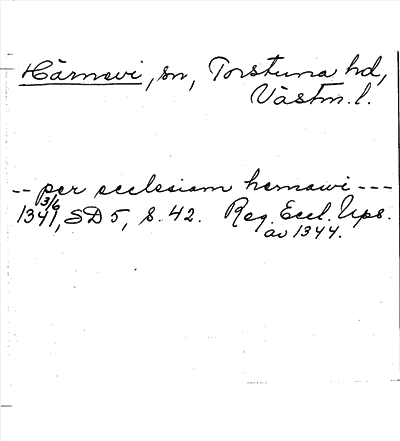 Härnevi, sn, Torstuna hd,
Västm. l.
-- per ecclesiam hernawi ---
1341 3/6, SD 5, s. 42. Reg. Eccl. Ups.
av 1344.